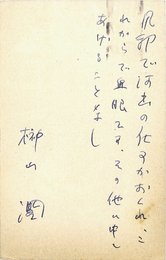 風邪で河出の仕事がおくれ、こ
れからで且眼です、その他に申し
あげることなし
榊山
潤